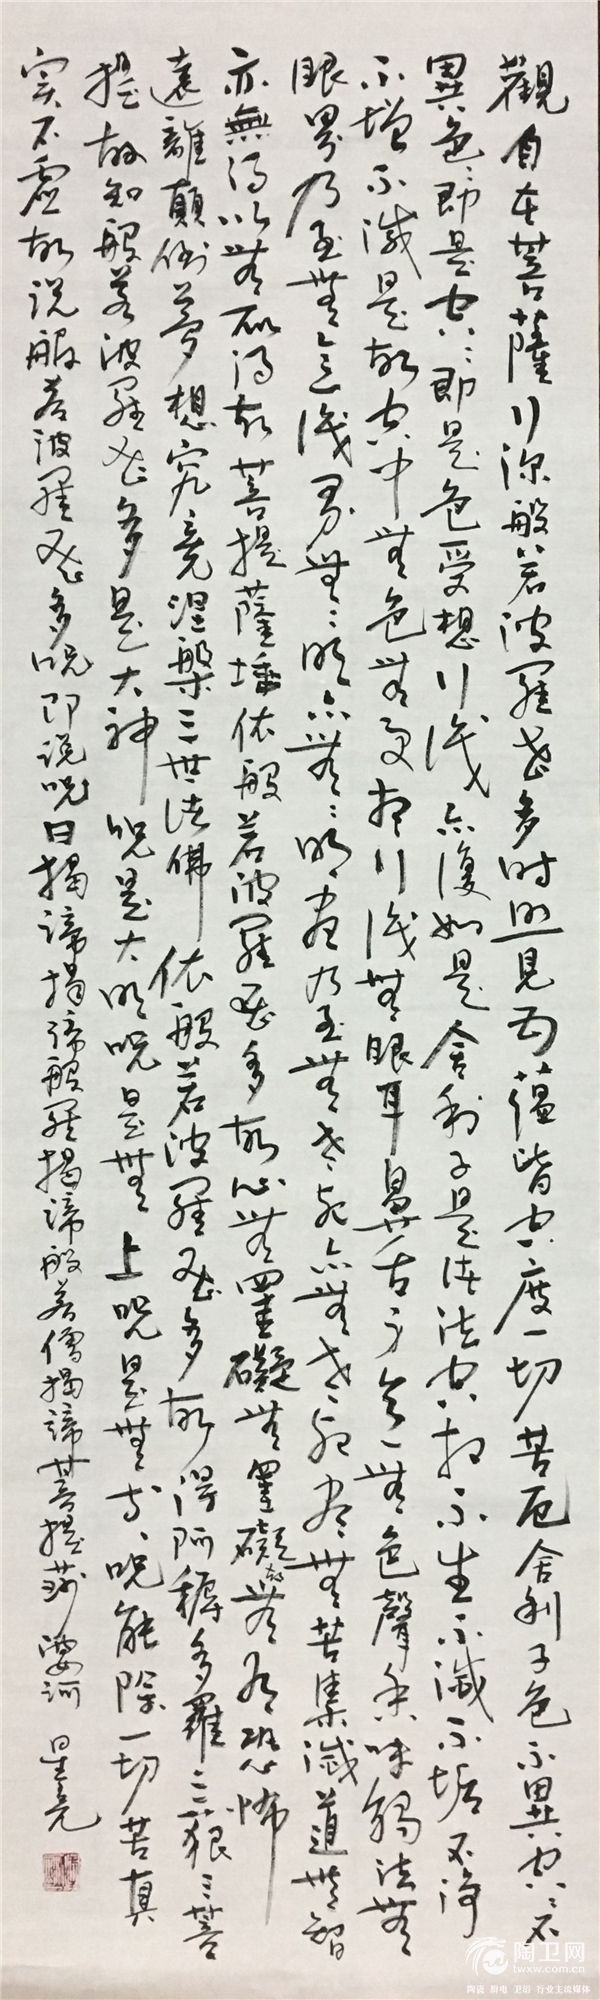 觀自在菩薩行深般若波羅蜜多時照見五蘊皆空度一切苦厄舍利子色不異空空不
異色色即是空空即是色受想行識亦復如是舍利子是諸法空相不生不滅不垢不淨
不增不減是故空中無色無受想行識無眼耳鼻舌身意無色聲香味觸法無
眼界乃至無意識界無無明亦無無明盡乃至無老死亦無老死盡無苦集滅道無智
亦無得以無所得故菩提薩埵依般若波羅蜜多故心無罣礙無罣礙故無有恐怖
遠離顛倒夢想究竟涅槃三世諸佛依般若波羅蜜多故得阿耨多羅三藐三菩
提故知般若波羅蜜多是大神咒是大明咒是無上咒是無等等咒能除一切苦真
实不虛故说般若波羅蜜多咒即说咒曰揭諦揭諦般羅揭諦般若僧揭諦菩提薩婆訶 星亮
陶卫网
www.twxw.com.cn
陶瓷 厨电 卫浴 行业主流媒体